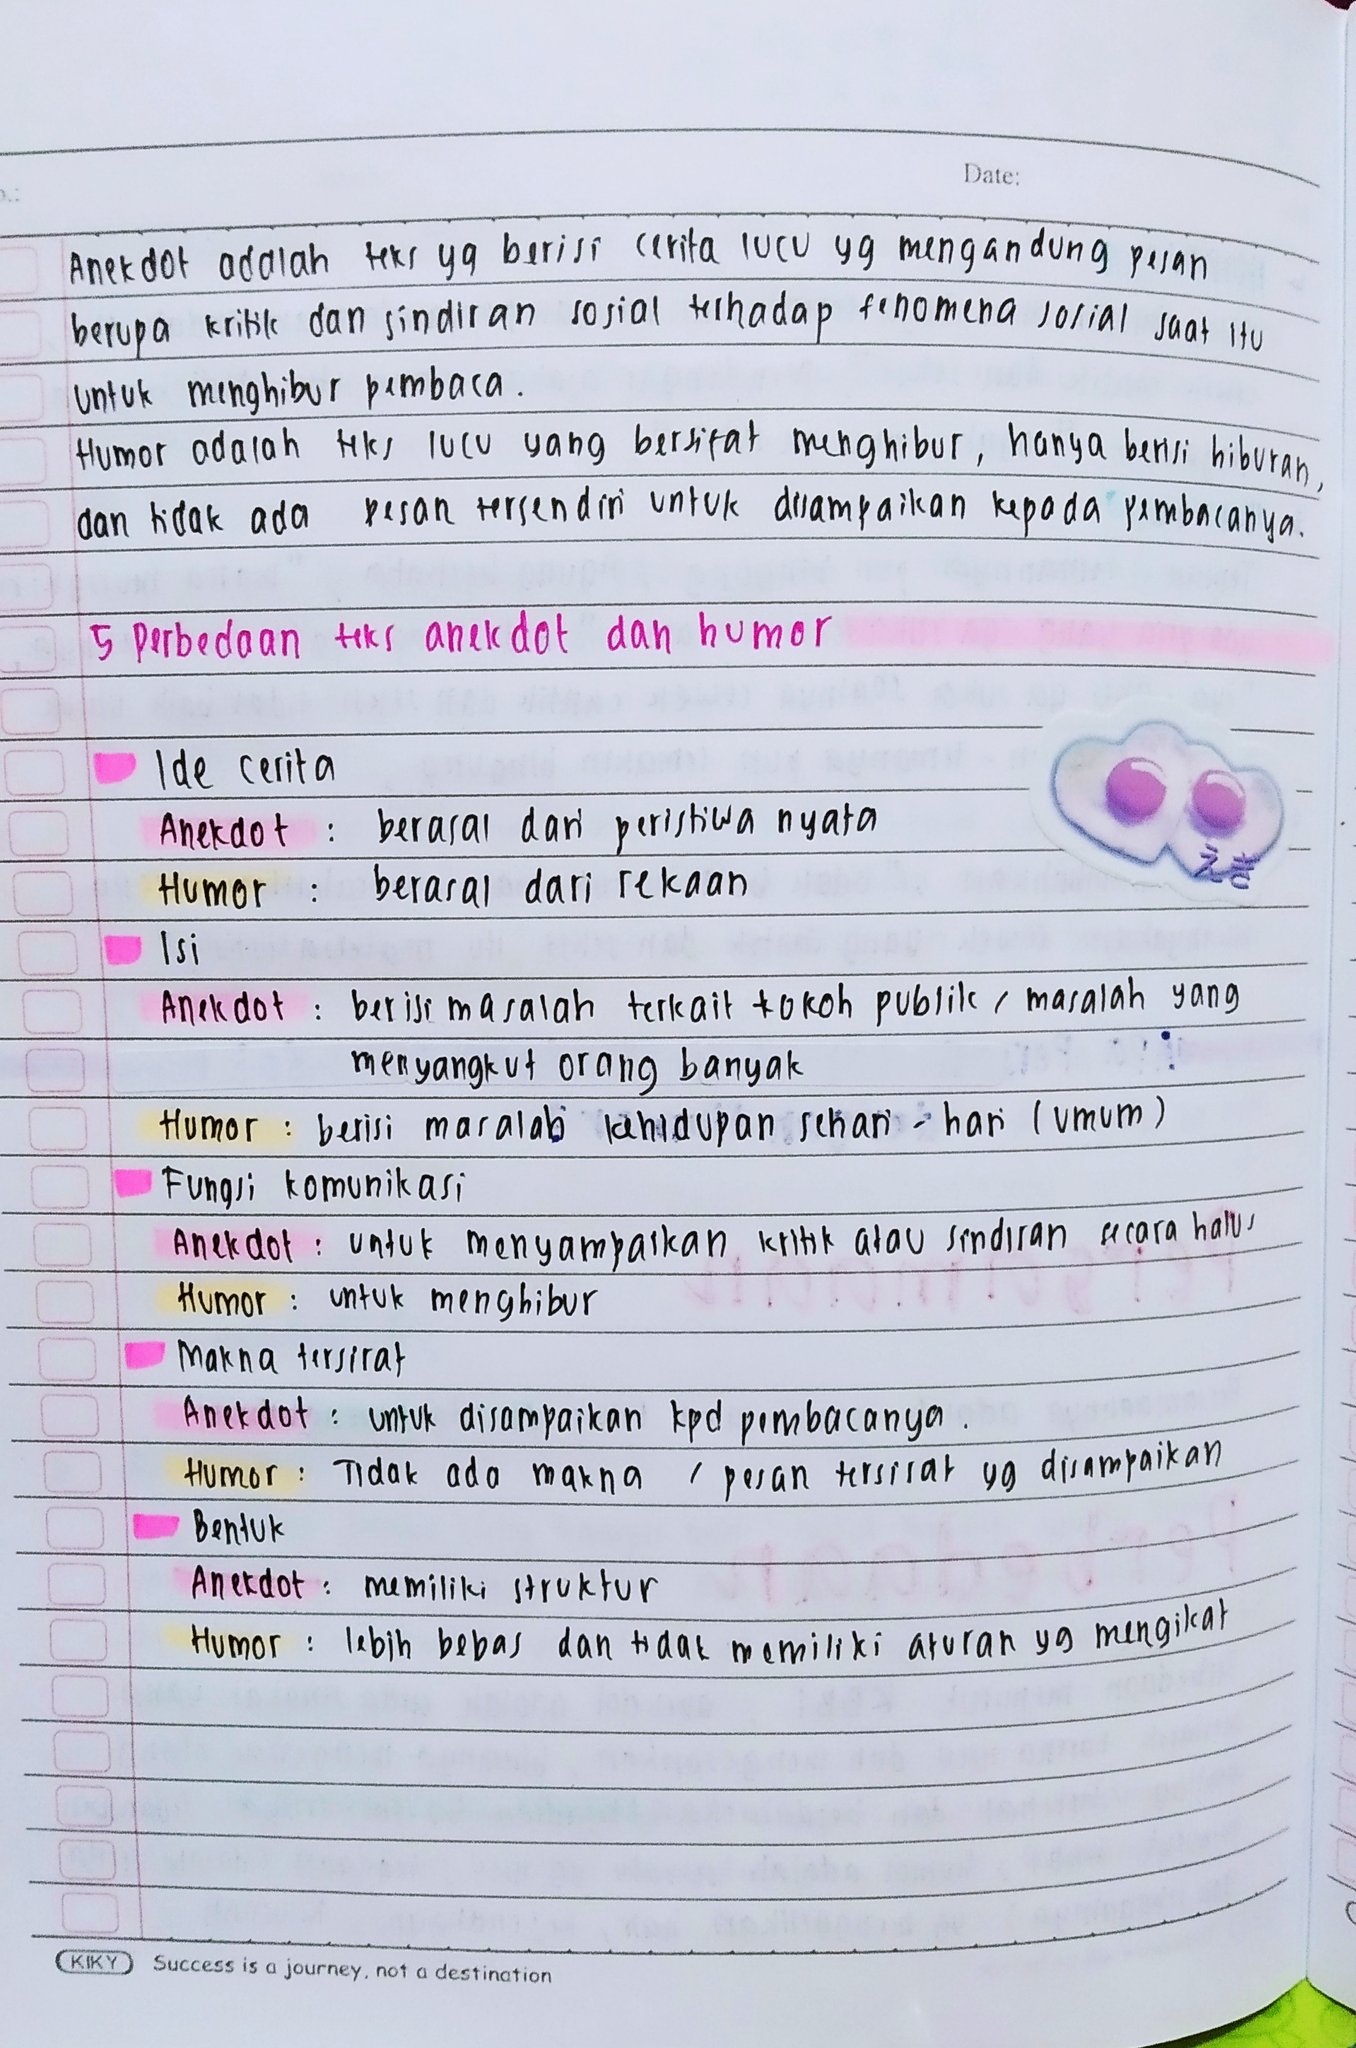 Date:
Anekdot adalah teks yg berisi cerita lucu yg mengandung pesan
berupa kritik dan sindiran sosial terhadap fenomena sosial saat itu
untuk menghibur pembaca.
Humor adalah teks lucu yang bersifat menghibur, hanya berisi hiburan,
dan tidak ada pesan tersendiri untuk disampaikan kepada pembacanya.
5 Perbedaan teks anekdot dan humor
Ide cerita
Anekdot : berasal dari peristiwa nyata
えき
Humor : berasal dari rekaan
Isi
Anekdot : berisi masalah terkait tokoh publik / masalah yang
menyangkut orang banyak
Humor : berisi masalah kehidupan sehari - hari (umum)
Fungsi komunikasi
Anekdot : untuk menyampaikan kritik atau sindiran secara halus
Humor : untuk menghibur
Makna tersirat
Anekdot : untuk disampaikan kpd pembacanya.
Humor : Tidak ada makna / pesan tersirat yg disampaikan
Bentuk
Anekdot : memiliki struktur
Humor : lebih bebas dan tidak memiliki aturan yg mengikat
KIKY Success is a journey, not a destination